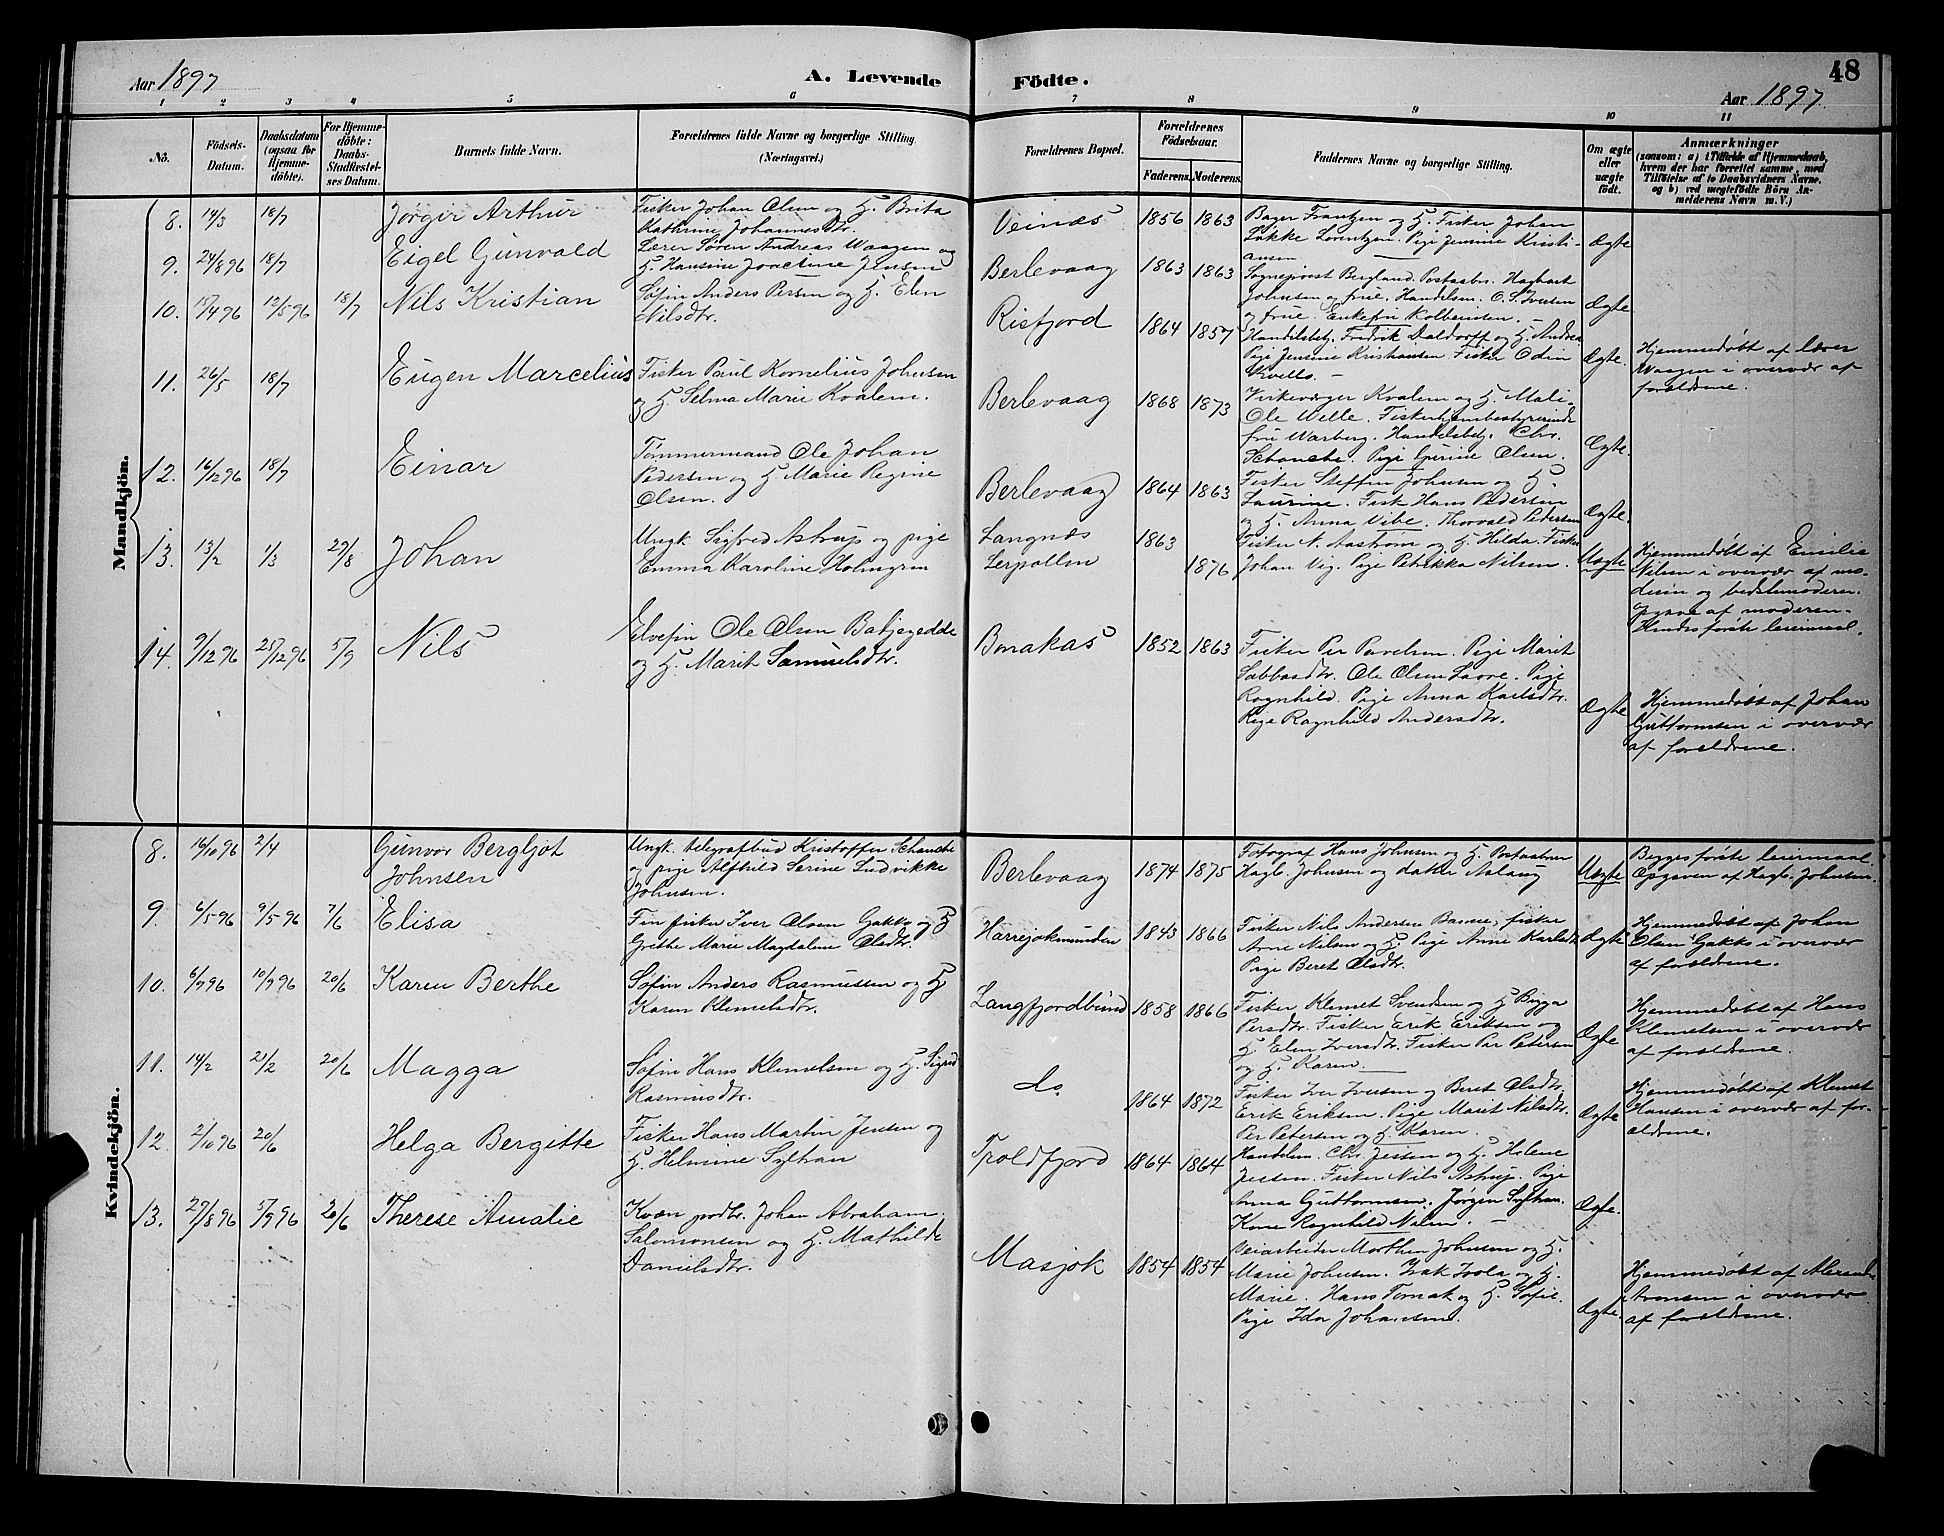 Aar 1897
A. Levende
Födte.
48
Aar 1897
1 2 3 4 5 6 7 8 9 10 11
No.
Födsels-
Datum.
Daabsdatum
(ogsaa for
Hjemme-
döbte).
For Hjemme-
döbte:
Daabs-
Stadfæstel-
ses Datum.
Barnets fulde Navn.
Forældrenes fulde Navne og borgerlige Stilling.
(Næringsvei.)
Forældrenes Bopæl.
Forældrenes
Födselsaar.
Faderens. Moderens.
Faddernes Navne og borgerlige Stilling.
Om ægte
eller
uægte
födt.
Anmærkninger
(saasom: a) i Tilfælde af Hjemmedaab,
hvem der har forrettet samme, med
Tilföielse af to Daabsvidners Navne.
og b) ved uægtefödte Börn An-
melderens Navn m. V.)
Mandkjön.
8. 14/3 18/7 Jørgir Arthur
Fisker Johan Olsen og H. Brita
Kathrine Johannesdtr.
Veinæs 1856 1863
Bager Frantzen og H. Fisker Johan
Løkke Lorentzen. Pige Jensine Kristi-
ansen
Ægte
9. 24/8 96 18/7 Eigel Gunvald
Lærer Søren Andreas Waagen og
H. Hansine Joachine Jensen
Berlevaag 1863 1863
Sogneprest Bergland. Postaabn. Hagbart
Johnsen og frue. Handelsm. O. S. Iversen
og frue. Enkefru Kolbensen.
Ægte
10. 15/4 96 12/5 96 18/7 Nils Kristian
Søfin Anders Persen og H. Elen
Nilsdtr.
Risfjord 1864 1857
Handelsbetj. Fredrik Daldorff og H. Andrea
Pige Jensine Kristiansen Fisker Odin
Kvello.
Ægte.
Hjemmedøbt af lærer
Waagen i overvær af
forældrene.
11. 26/5 18/7 Eugen Marcelius
Fisker Paul Kornelius Johnsen
og H. Selma Marie Kvalem.
Berlevaag 1868 1873
Kirkeværger Kvalem og H. Mali.
Ole Welle. Fiskerhjembestyrerinde
fru Warberg. Handelsbetj. Chr.
Schanche. Pige Olsen.
Ægte.
12. 16/12 96 18/7 Einar
Tømmermand Ole Johan
Pedersen og H. Marie Regine
Olsen.
Berlevaag 1864 1863
Fisker Steffen Johnsen og H.
Laurine. Fisk Hans Pedersen
og H. Anna Vibe. Thorvald Pedersen
Ægte.
13. 13/2 1/3 29/8 Johan
Ungk. Sigfred Astrup og pige
Emma Karoline Holmgren
Langnæs 1863
Lerpollen 1876
Fisker N. Aastrøm og H. Hilda. Fisker
Johan Vig. Pige Petrikka Nilsen.
Uægte
Hjemmedøbt af Emilie
Nilsen i overvær af mo-
deren og bedstemoderen.
Opgave af moderen.
Kindes første leiermaal.
14. 9/12 96 25/12 96 5/9 Nils
Elvefin Ole Olsen Batjegedde
og H. Marit Samuelsdtr.
Bonakas 1852 1863
Fisker Per Pavelsen. Pige Marit
Sabbasdtr. Ole Olsen Lavre. Pige
Ragnhild. Pige Anna Karlsdtr.
Pige Ragnhild Andersdtr.
Ægte
Hjemmedøbt af Johan
Guttormsen i overvær
af forældrene.
Kvindekjön.
8. 16/10 96 2/4 Gunvor Bergljot
Johnsen
Ungk. telegrafbud Kristoffer Schanche
og pige Alfhild Serine Ludvikke
Johnsen.
Berlevaag 1874 1875
Fotograf Hans Johnsen og H. Postaabner
Hagb. Johnsen og datter Aslaug
Uægte
Begges første leiermaal.
Opgaven af Hagb. Johnsen.
9. 6/5 96 9/5 96 7/6 Elisa
Fin fisker Iver Olsen Gakko og H
Grethe Marie Magdalene Olsdtr.
Harrejokmunden 1843 1866
Fisker Nils Andersen Banne, fisker
Arne Nilsen og H. Pige Anne Karlsdtr
Pige Beret Olsdtr.
Ægte
Hjemmedøbt af Johan
Olsen Gakko i overvær
af forældrene.
10. 6/9 96 10/9 96 20/6 Karen Berthe
Søfin Anders Rasmussen og H
Karen Klemetsdtr.
Langfjordbund 1858 1866
Fisker Klemet Svendsen og H Bigga
Persdtr. Fisker Erik Eriksen og
H. Elen Iversdtr. Fisker Per Petersen
og H. Karen.
Ægte
Hjemmedøbt af Hans
Klemetsen i overvær
af forældrene.
11. 14/2 21/2 20/6 Magga
Søfin Hans Klemetsen og H. Sigrid
Rasmusdtr.
do 1864 1872
Fisker Iver Iversen og Beret Olsdtr.
Erik Eriksen. Pige Marit Nilsdtr.
Per Petersen og H. Karen.
Ægte
Hjemmedøbt af Klemet
Hansen i overvær af for-
ældrene.
12. 2/10 96 20/6 Helga Bergitte
Fisker Hans Martin Jensen og
H. Helmine Sylthan
Troldfjord 1864 1864
Handelsm. Chr. Jessen og H. Helene
Jessen. Fisker Nils Astrup. Pige
Anna Guttormsen. Jørgen Sylthan.
Kone Ragnhild Nilsen.
Ægte.
13. 27/8 96 5/9 96 20/6 Therese Amalie
Kvæn Johan Abraham
Salomonsen og H. Mathilde
Danielsdtr.
Masjok 1854 1854
Veiarbeider Morthen Johnsen og H.
Marie Johnsen. Isak Isola og H.
Marie. Hans Tornak og H. Sofie.
Pige Ida Johansen.
Ægte.
Hjemmedøbt af
Aronsen i overvær
af forældrene.